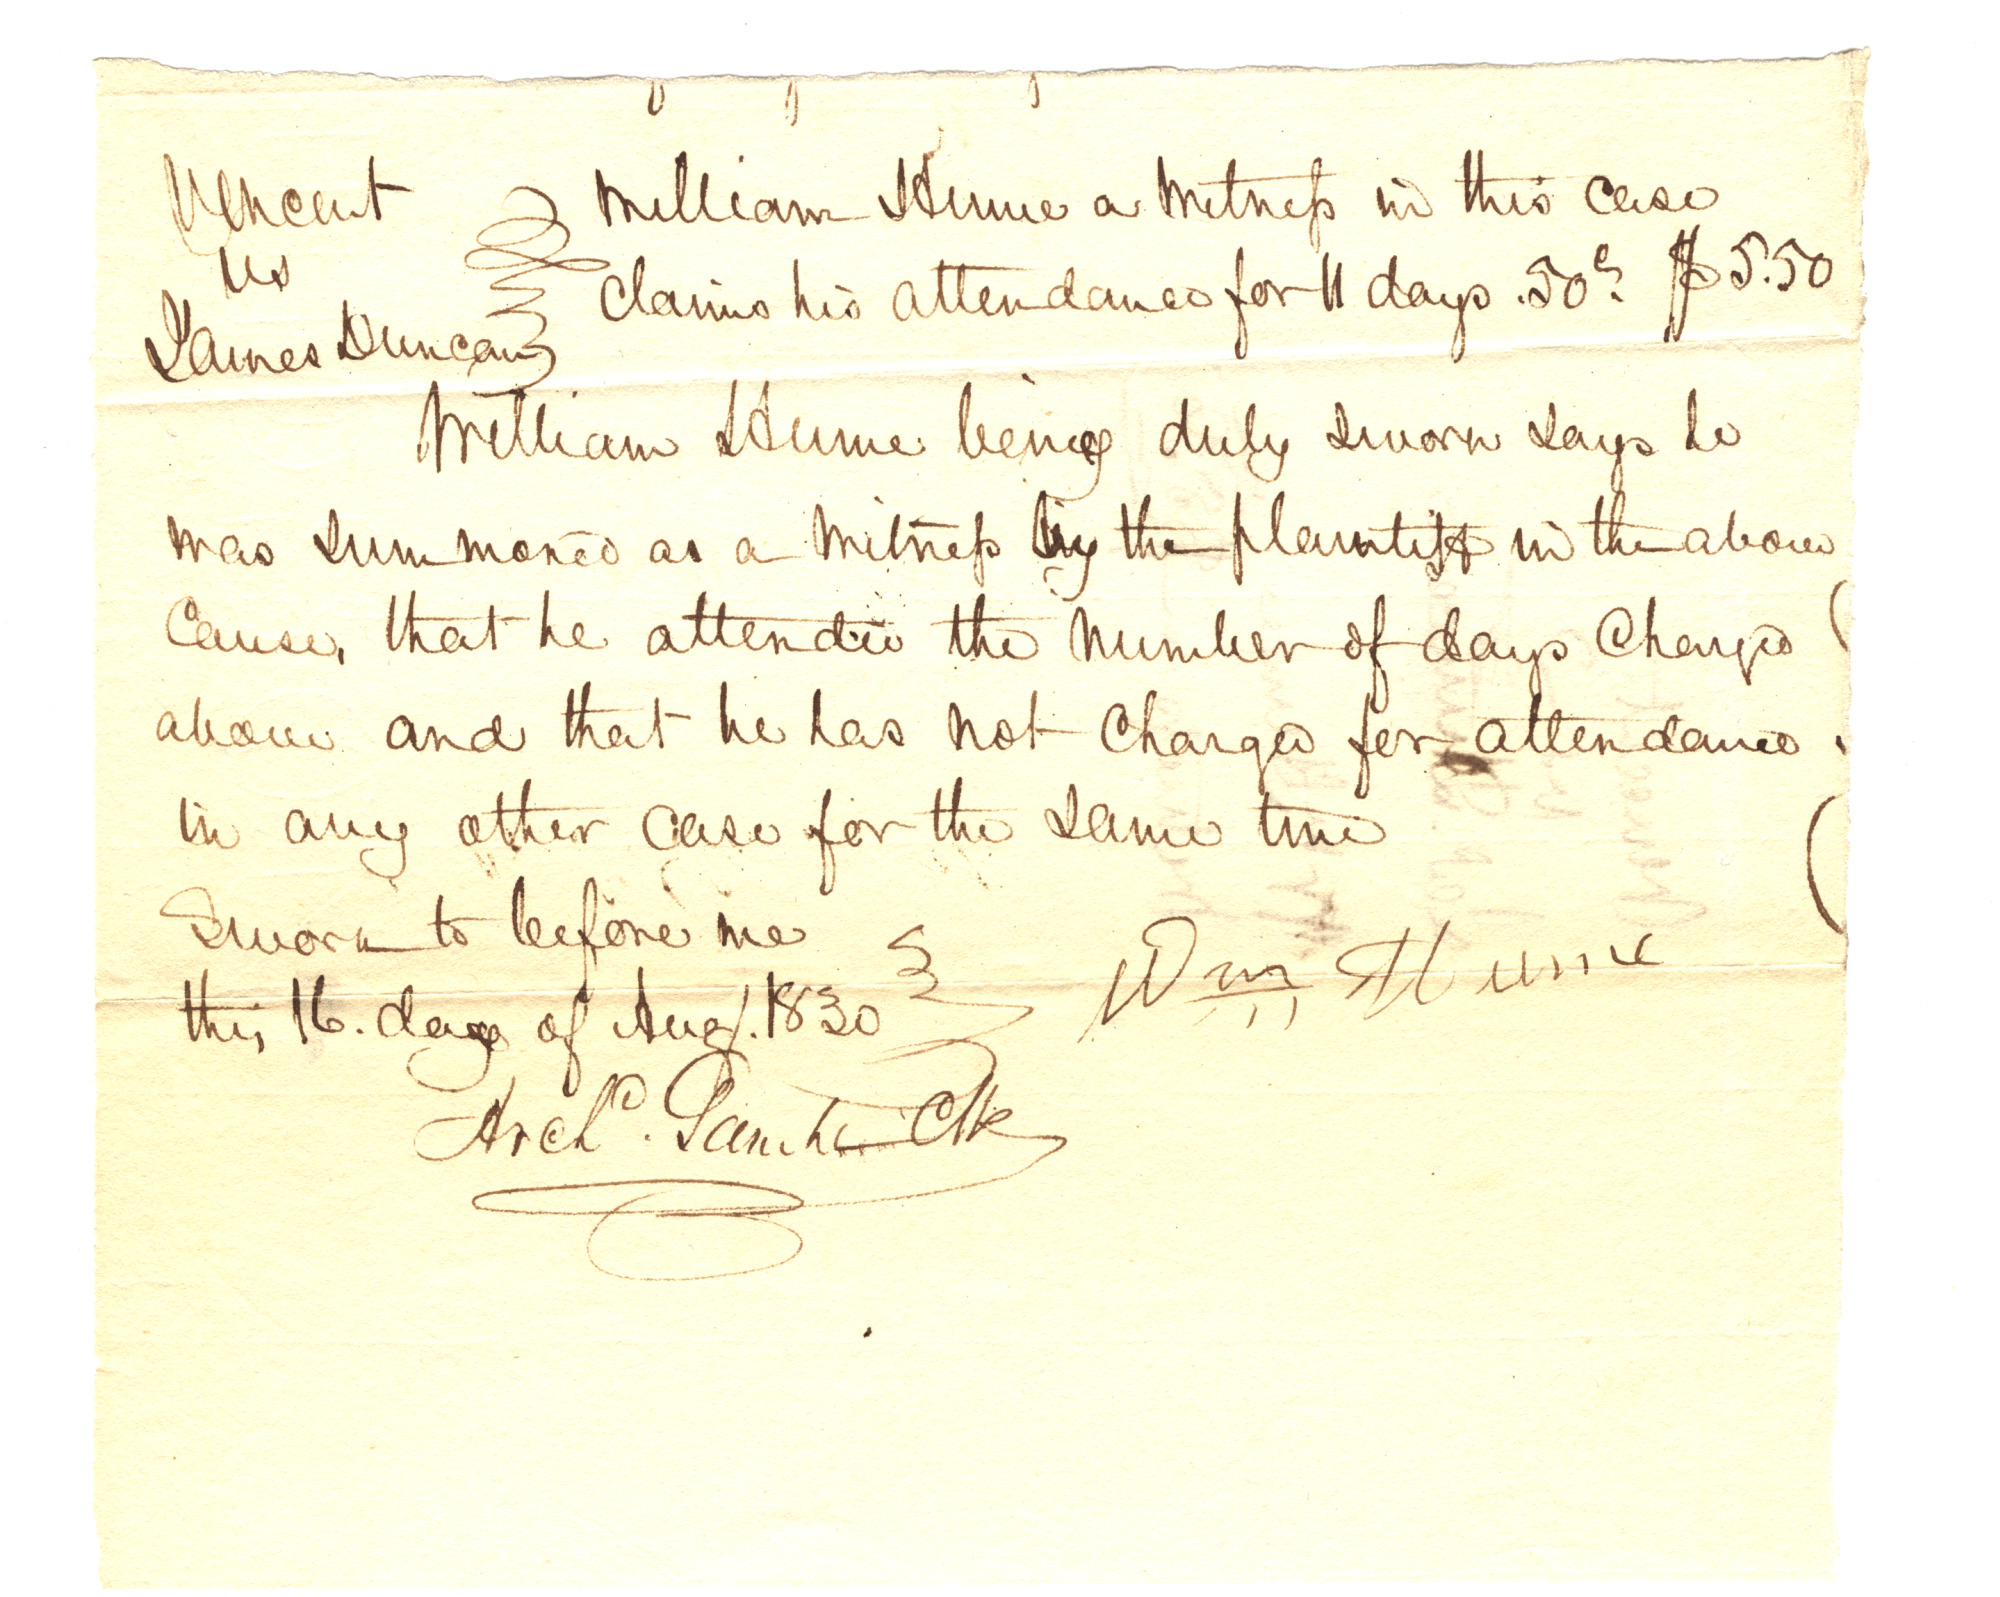 Vincent
vs
James Duncan
William Hume a Witness in this case
claims his attendance for 11 days .50c. $5.50
William Hume being duly sworn says he
was summoned as a Witness by the plaintiff in the above
Cause, that he attended the number of days Charged
above and that he has not Charged for attendance
in any other case for the same time
Sworn to before me
this 16. day of Aug. 1830
Wm Hume
Archd. Clk